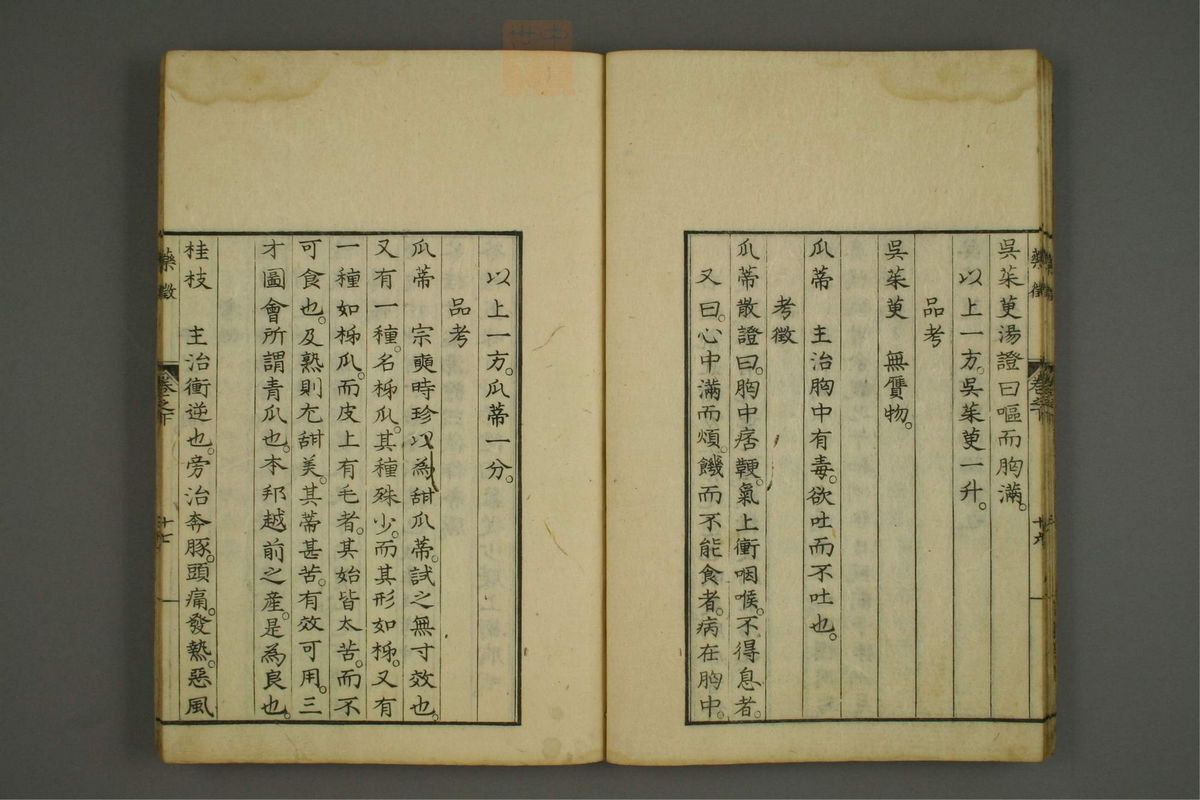 呉茱萸湯證曰嘔而胸滿。
以上一方。呉茱萸一升。
品考
呉茱萸　無贋物。
瓜蒂　主治胸中有毒。欲吐而不吐也。
考徵
瓜蒂散證曰。胸中痞鞕。氣上衝咽喉。不得息者。
又曰。心中滿而煩。饑而不能食者。病在胸中。
以上一方。瓜蒂一分。
品考
瓜蒂　宗奭時珍以為甜瓜蒂。試之無寸效也。
又有一種。名柹瓜。其種殊少。而其形如柹。又有
一種如柹瓜。而皮上有毛者。其始皆太苦。而不
可食也。及熟則尤甜美。其蒂甚苦。有效可用。三
才圖會所謂青瓜也。本邦越前之產。是為良也。
桂枝　主治衝逆也。旁治奔豚。頭痛。發熱。惡風
藥徵
卷之下
十七